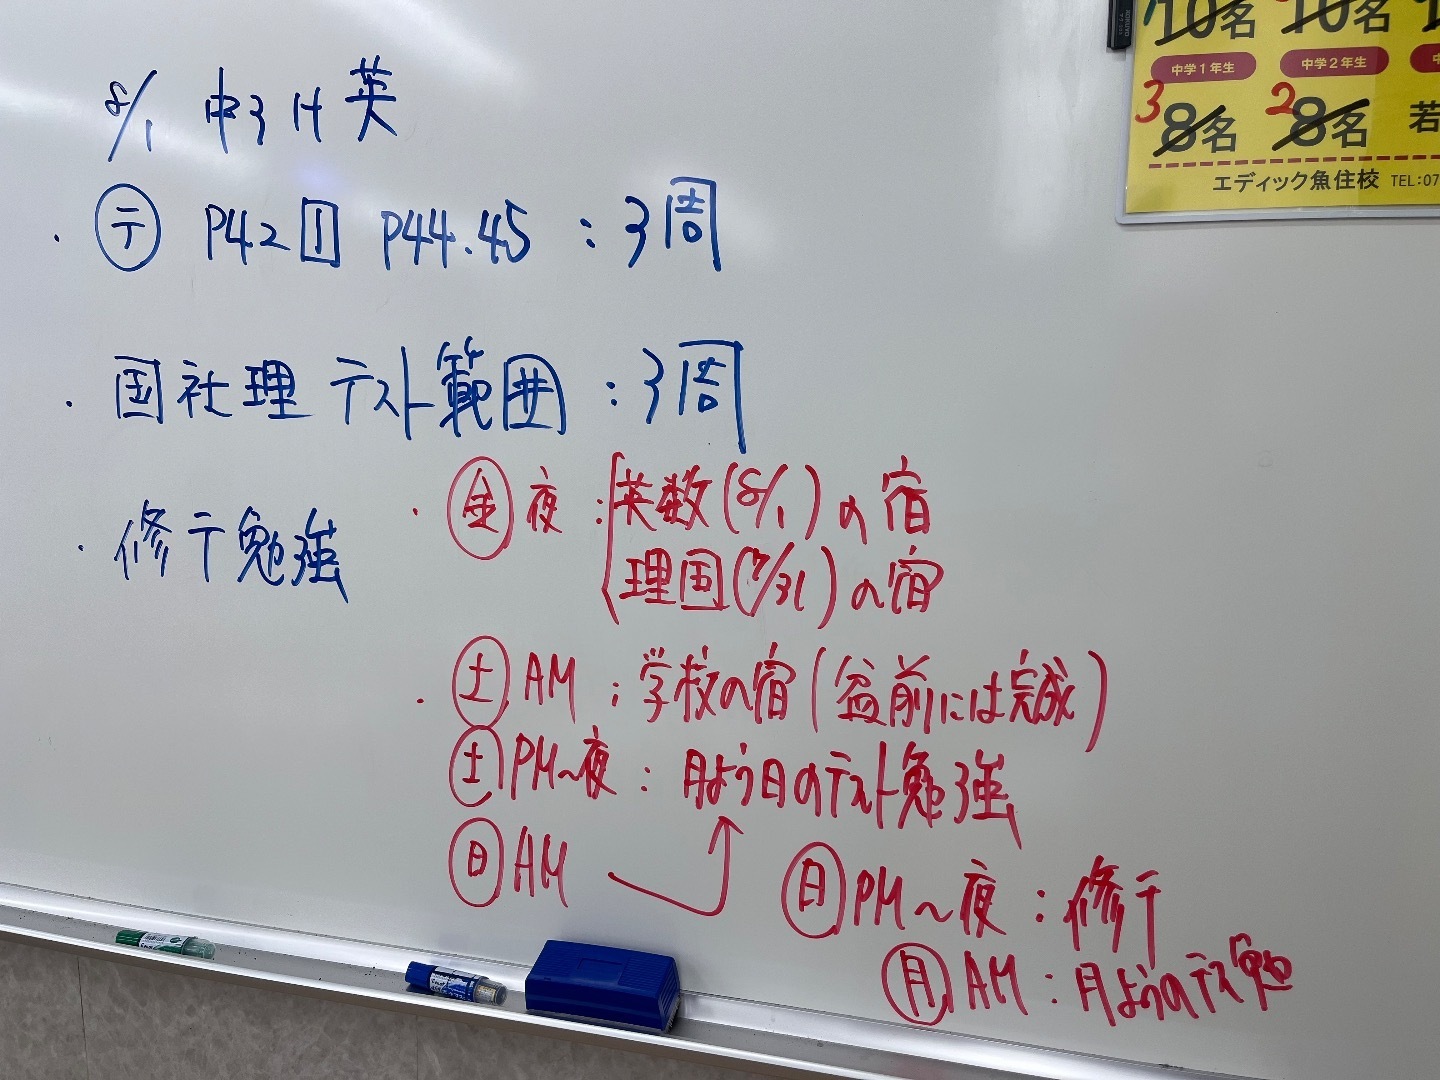 8/1 中3H英
・㋢ P42 1 P44.45：3周
・国社理 テスト範囲：3周
・修テ勉強
・金夜：英数(8/1)の宿
理国(7/31)の宿
・土AM：学校の宿(盆前には完成)
土PM～夜：月よう日のテスト勉強
日AM
日PM～夜：修テ
月AM：月ようのテス勉
10名 10名
中学1年生 中学2年生
3 8名 2 8名 若
エディック魚住校 TEL:07